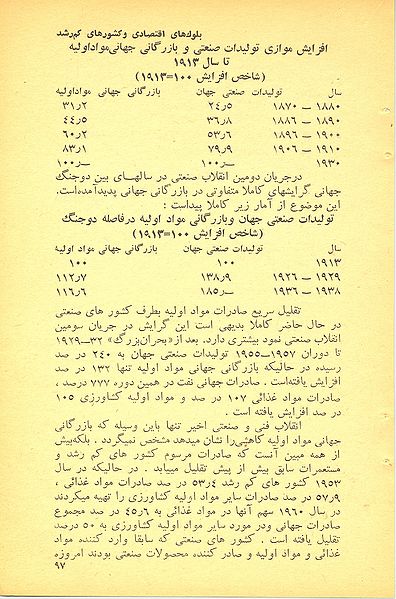 بلوك‌های اقتصادی و کشورهای کم‌رشد
افزایش موازی تولیدات صنعتی و بازرگانی جهانی مواد اولیه
تا سال ۱۹۱۳
(شاخص افزایش ۱۰۰=۱۹۱۳)
سال تولیدات صنعتی جهان بازرگانی جهانی مواد اولیه
۱۸۸۰ — ۱۸۷۰ ۲۴٫۵ ۳۱٫۲
۱۸۹۰ — ۱۸۸۶ ۳۶٫۸ ۴۴٫۵
۱۹۰۰ — ۱۸۹۶ ۵۳٫۶ ۶۰٫۲
۱۹۱۰ — ۱۹۰۶ ۷۹٫۹ ۸۳٫۱
۱۹۳۰ ۱۰۰٫— ۱۰۰٫—
درجریان دومین انقلاب صنعتی در سالهای بین دوجنگ
جهانی گرایشهای کاملا متفاوتی در بازرگانی جهانی پدیدآمده‌است.
این موضوع از آمار زیر کاملا پیداست :
تولیدات صنعتی جهان وبازرگانی مواد اولیه درفاصله دوجنگ
(شاخص افزایش ۱۰۰=۱۹۱۳)
سال تولیدات صنعتی جهان بازرگانی جهانی مواد اولیه
۱۹۱۳ ۱۰۰ ۱۰۰
۱۹۲۹ — ۱۹۲۶ ۱۳۸٫۹ ۱۱۲٫۷
۱۹۳۸ — ۱۹۳۶ ۱۸۵٫— ۱۱۶٫۶
تقلیل سریع صادرات مواد اولیه بطرف کشور های صنعتی
در حال حاضر کاملا بدیهی است این گرایش در جریان سومین
انقلاب صنعتی نمود بیشتری دارد. بعد از «بحران بزرگ» ۳۲—۱۹۲۹
تا دوران ۱۹۵۷—۱۹۵۵ تولیدات صنعتی جهان به ۲۴۰ در صد
رسیده در حالیکه بازرگانی جهانی مواد اولیه تنها ۱۳۲ در صد
افزایش یافته‌است . صادرات جهانی نفت در همین دوره ۷۷۷ درصد ،
صادرات مواد غذائی ۱۰۷ در صد و مواد اولیه کشاورزی ۱۰۵
در صد افزایش یافته است .
انقلاب فنی و صنعتی اخیر تنها باین وسیله که بازرگانی
جهانی مواد اولیه کاهشی‌را نشان میدهد مشخص نمیگردد . بلکه‌بیش
از همه مبین آنست که صادرات مرسوم کشور های کم رشد و
مستعمرات سابق بیش از پیش تقلیل مییابد . در حالیکه در سال
۱۹۵۳ کشور های کم رشد ۵۳٫۴ در صد صادرات مواد غذائی ،
۵۷٫۹ در صد صادرات سایر مواد اولیه کشاورزی را تهیه میکردند
در سال ۱۹۶۰ سهم آنها در مواد غذائی به ۴۵٫۶ در صد مجموع
صادرات جهانی ودر مورد سایر مواد اولیه کشاورزی به ۵۰ درصد
تقلیل یافته است . کشور های صنعتی که سابقا وارد کننده مواد
غذائی و مواد اولیه و صادر کننده محصولات صنعتی بودند امروزه
۹۷